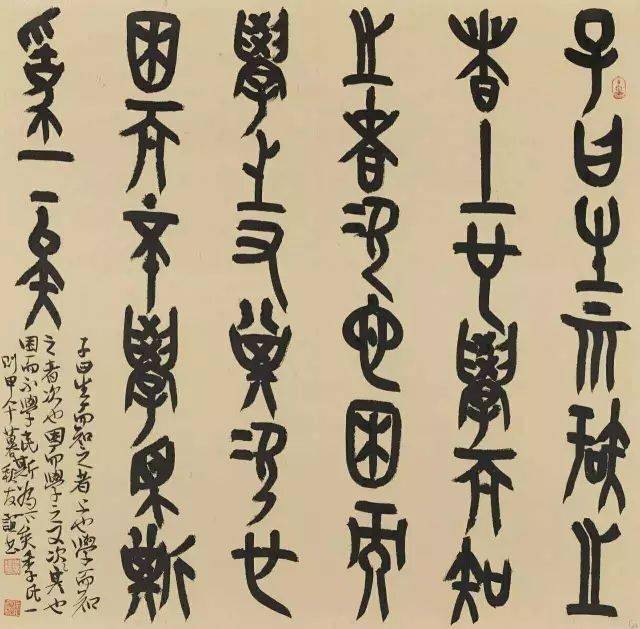 子曰生而知之
者上也學而知
之者次也困而
學之又其次也
困而不學民斯
為下矣
子曰生而知之者上也學而知
之者次也困而學之又次其也
困而不學民斯為下矣季氏一
則甲午暮魏友誼書